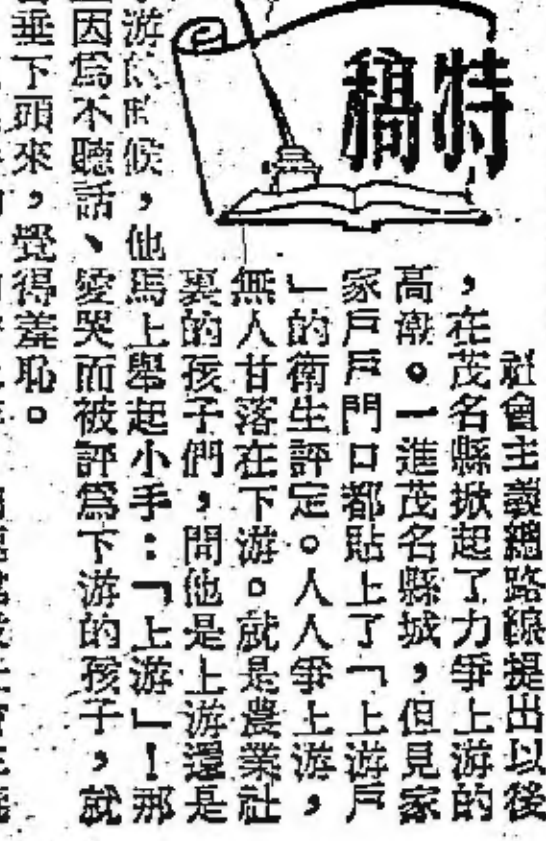 特稿
社會主義總路線提出以後
，在茂名縣掀起了力爭上游的
高潮。一進茂名縣城，但見家
家戶戶門口都貼上了「上游戶
」的衛生評定。人人爭上游，
無人甘落在下游。就是農業社
裏的孩子們，問他是上游還是
游的時候，他馬上舉起小手：「上游」！那
因爲不聽話、愛哭而被評爲下游的孩子，就
垂下頭來，覺得羞恥。